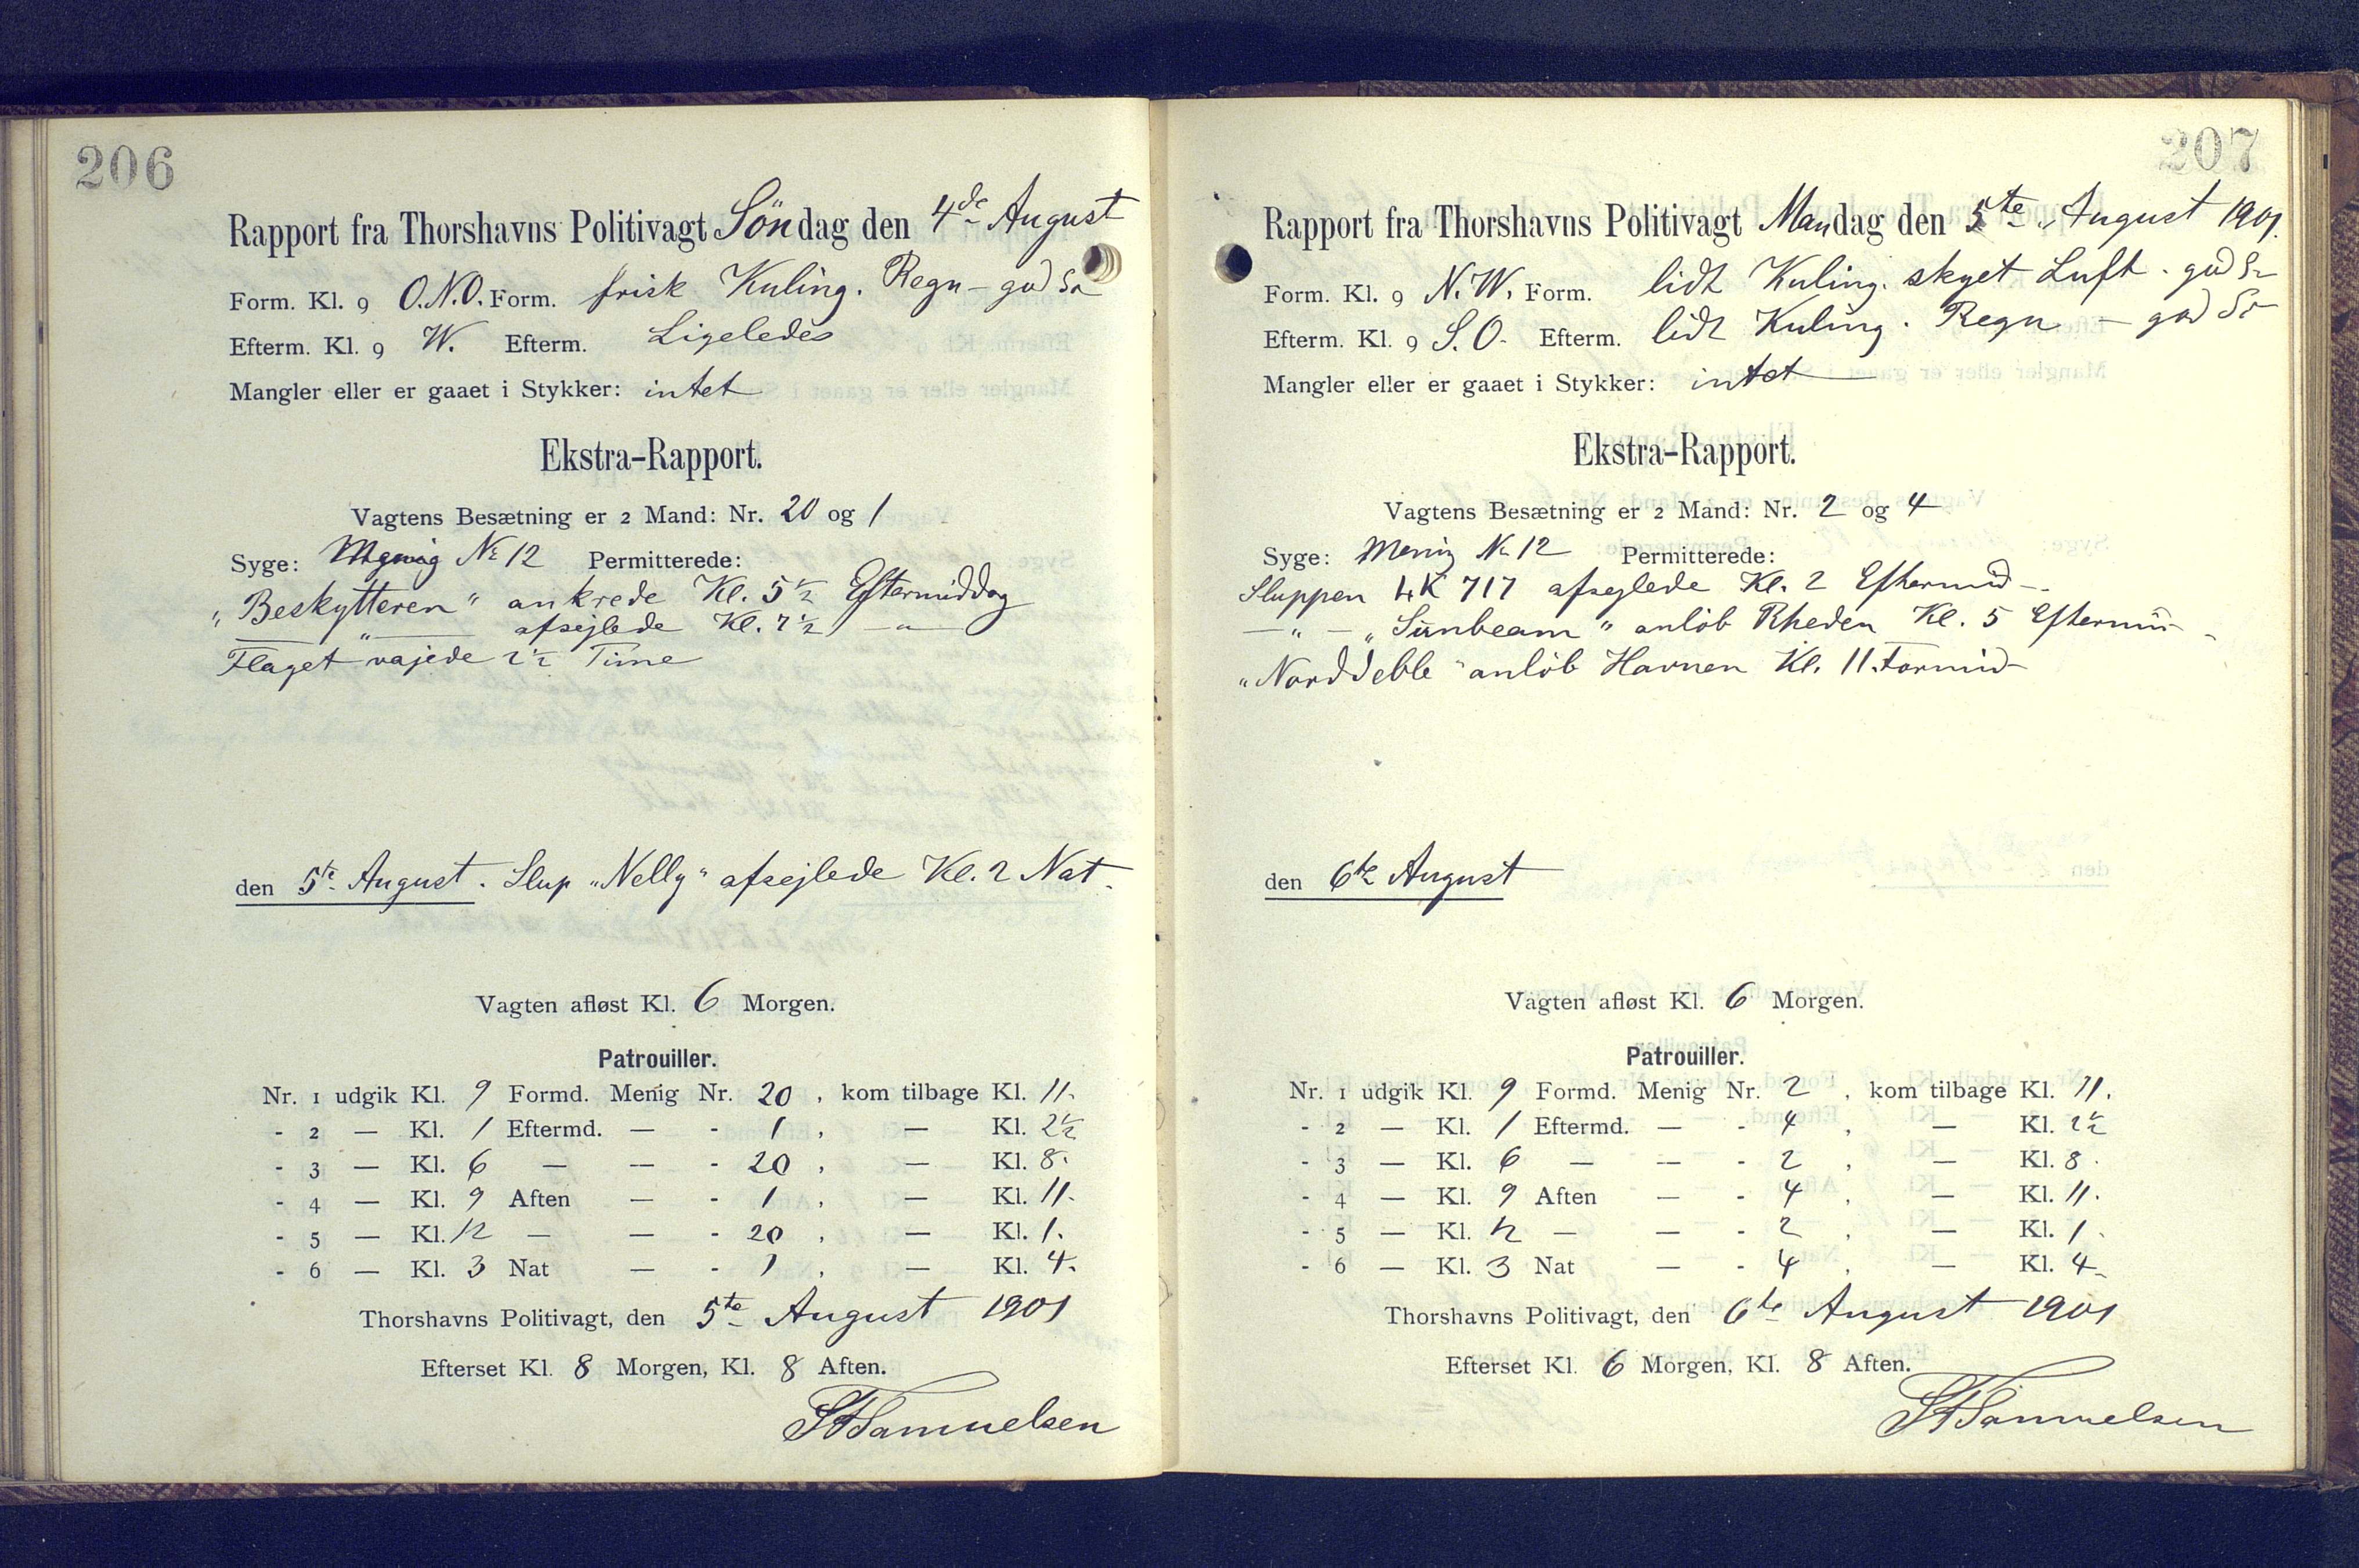 206
Rapport fra Thorshavns Politivagt Söndag den 4de August
Form. Kl. 9 O.N.O. Form. frisk Kuling. Regn - god Sö
Efterm. Kl. 9 W. Efterm. Ligeledes
Mangler eller er gaaet i Stykker: intet
Ekstra-Rapport.
Vagtens Besætning er 2 Mand: Nr. 20 og 1
Syge: Menig Nr 12 Permitterede:
"Beskytteren" ankrede Kl. 5 1/2 Eftermiddag
— " — afsejlede Kl. 7 1/2 — " —
Flaget vajede 2 1/2 Time
den 5te August. Slup "Nelly" afsejlede Kl. 2 Nat.
Vagten afløst Kl. 6 Morgen.
Patrouiller.
Nr. 1 udgik Kl. 9 Formd. Menig Nr. 20, kom tilbage Kl. 11.
- 2 — Kl. 1 Eftermd. — - 1, — Kl. 2 1/2
- 3 — Kl. 6 — — - 20, — Kl. 8.
- 4 — Kl. 9 Aften — - 1, — Kl. 11.
- 5 — Kl. 12 — — - 20, — Kl. 1.
- 6 — Kl. 3 Nat — - 1, — Kl. 4.
Thorshavns Politivagt, den 5te August 1901
Efterset Kl. 8 Morgen, Kl. 8 Aften.
Samuelsen
207
Rapport fra Thorshavns Politivagt Mandag den 5te August 1901.
Form. Kl. 9 N.W. Form. lidt Kuling. skyet Luft. god Sö
Efterm. Kl. 9 S.O. Efterm. lidt Kuling. Regn - god Sö
Mangler eller er gaaet i Stykker: intet
Ekstra-Rapport.
Vagtens Besætning er 2 Mand: Nr. 2 og 4
Syge: Menig Nr 12 Permitterede:
Sluppen LK 717 afseglede Kl. 2 Eftermid-
— " — "Sunbeam" anlöb Rheden Kl. 5 Eftermid-
"Norddeble" anlöb Havnen Kl. 11 Formid-
den 6te August
Vagten afløst Kl. 6 Morgen.
Patrouiller.
Nr. 1 udgik Kl. 9 Formd. Menig Nr. 2, kom tilbage Kl. 11.
- 2 — Kl. 1 Eftermd. — - 4, — Kl. 2 1/2
- 3 — Kl. 6 — — - 2, — Kl. 8.
- 4 — Kl. 9 Aften — - 4, — Kl. 11.
- 5 — Kl. 12 — — - 2, — Kl. 1.
- 6 — Kl. 3 Nat — - 4, — Kl. 4.
Thorshavns Politivagt, den 6te August 1901
Efterset Kl. 6 Morgen, Kl. 8 Aften.
Samuelsen